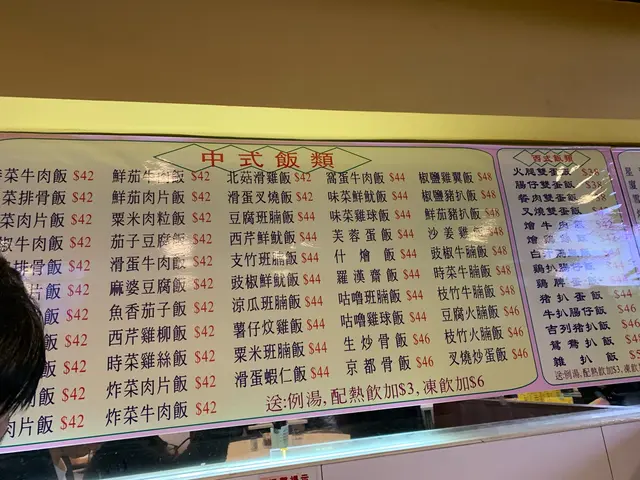 中式飯類
牛肉飯 $42
菜排骨飯 $42
菜肉片飯 $42
椒牛肉飯 $42
排骨飯 $42
片飯 $42
飯 $42
飯 $42
飯 $42
肉飯 $42
肉片飯 $42
鮮茄牛肉飯 $42
鮮茄肉片飯 $42
粟米肉粒飯 $42
茄子豆腐飯 $42
滑蛋牛肉飯 $42
麻婆豆腐飯 $42
魚香茄子飯 $42
西芹雞柳飯 $42
時菜雞絲飯 $42
炸菜肉片飯 $42
炸菜牛肉飯 $42
北菇滑雞飯 $42
滑蛋叉燒飯 $42
豆腐班腩飯 $44
西芹鮮魷飯 $44
支竹班腩飯 $44
豉椒鮮魷飯 $44
涼瓜班腩飯 $44
薯仔炆雞飯 $44
粟米班腩飯 $44
滑蛋蝦仁飯 $44
窩蛋牛肉飯 $44
味菜鮮魷飯 $44
味菜雞球飯 $44
芙蓉蛋飯 $44
什燴飯 $44
羅漢齋飯 $44
咕嚕班腩飯 $44
咕嚕雞球飯 $44
生炒骨飯 $46
京都骨飯 $46
椒鹽雞翼飯 $48
椒鹽豬扒飯 $48
鮮茄豬扒飯 $48
沙姜雞飯 $48
豉椒牛腩飯 $48
時菜牛腩飯 $48
枝竹牛腩飯 $48
豆腐火腩飯 $46
枝竹火腩飯 $46
叉燒炒蛋飯 $46
送:例湯,配熱飲加$3,凍飲加$6
西式飯類
火腿雙蛋飯 $38
腸仔雙蛋飯 $38
餐肉雙蛋飯 $38
叉燒雙蛋飯
燴牛肉飯
雞扒腸仔飯
雞脾飯
豬扒蛋飯 $44
牛扒腸仔飯 $46
吉列豬扒飯 $46
鴛鴦扒飯
雜扒飯
送:例湯,配熱飲加$3,凍飲加